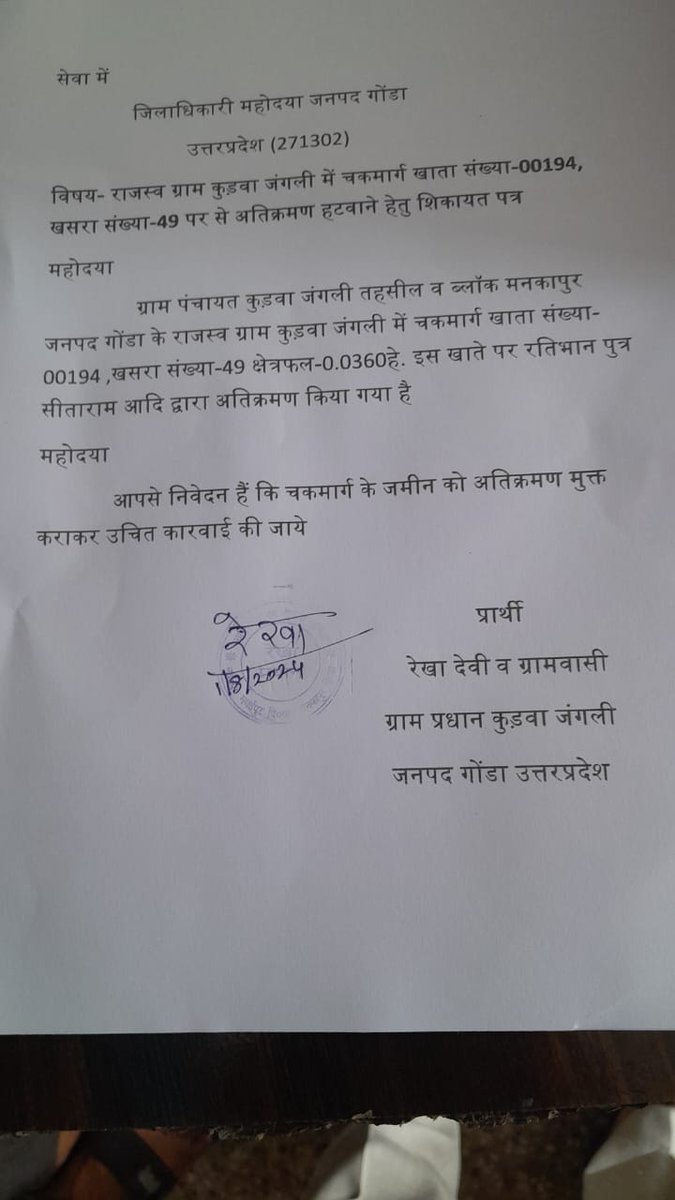 सेवा में
जिलाधिकारी महोदया जनपद गोंडा
उत्तरप्रदेश (271302)
विषय- राजस्व ग्राम कुड़वा जंगली में चकमार्ग खाता संख्या-00194,
खसरा संख्या-49 पर से अतिक्रमण हटवाने हेतु शिकायत पत्र
महोदया
ग्राम पंचायत कुड़वा जंगली तहसील व ब्लॉक मनकापुर
जनपद गोंडा के राजस्व ग्राम कुड़वा जंगली में चकमार्ग खाता संख्या-
00194 ,खसरा संख्या-49 क्षेत्रफल-0.0360हे. इस खाते पर रतिभान पुत्र
सीताराम आदि द्वारा अतिक्रमण किया गया है
महोदया
आपसे निवेदन हैं कि चकमार्ग के जमीन को अतिक्रमण मुक्त
कराकर उचित कारवाई की जाये
प्रार्थी
रेखा
रेखा देवी व ग्रामवासी
1/8/2024
ग्राम प्रधान कुड़वा जंगली
जनपद गोंडा उत्तरप्रदेश